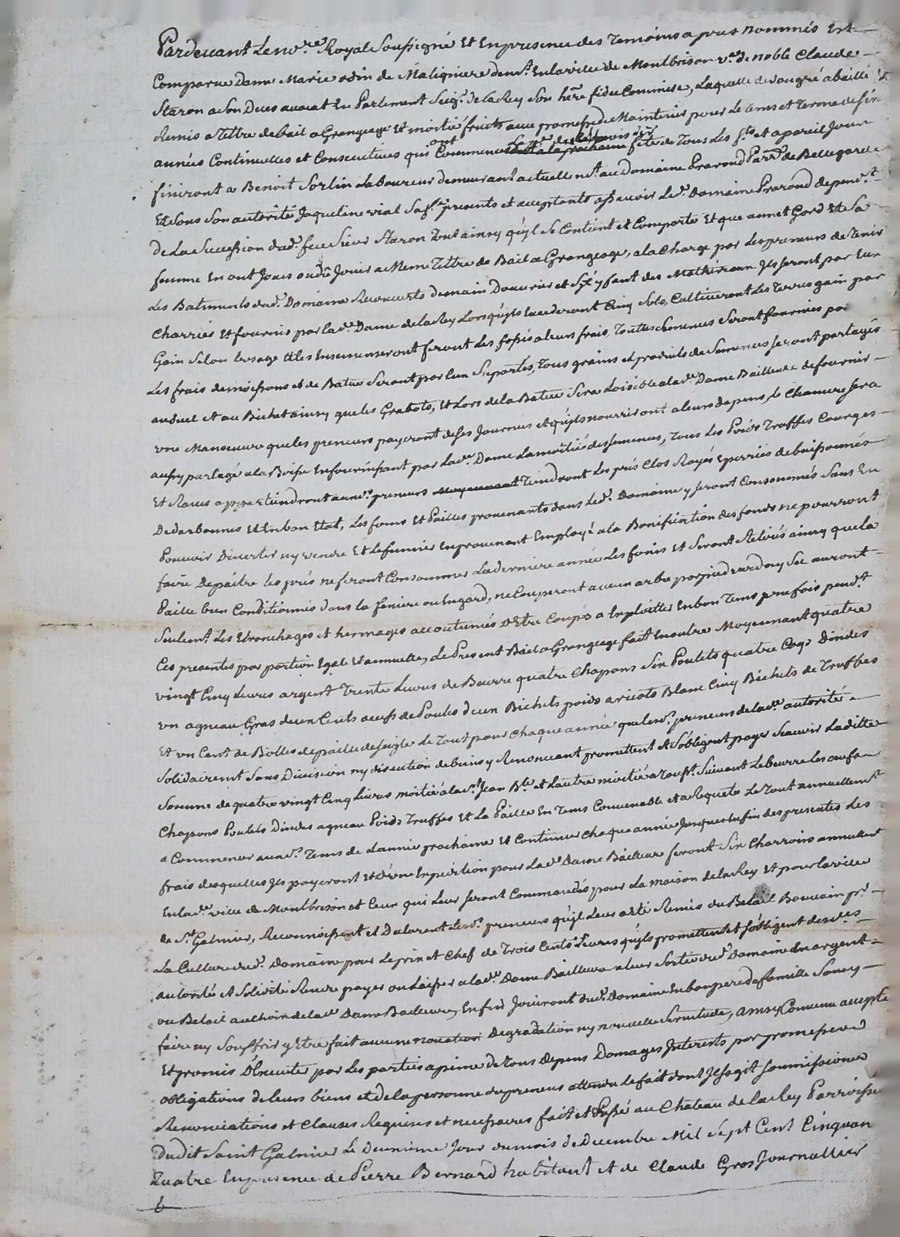 Pardevant Le no.re Royal Soussigné Et En presence des Temoins apres nommés Est
Comparüe Dame Marie odin de Malignière dem.t En la ville de Montbrison v.e de noble Claude
Staron a Son Deces avocat En Parlement Seig.r de Lachey Son here fideicommise, Laquelle de Son gré a baillé Et
Remis a Tittre de bail a Grangeage Et moitié fruits avec promesse de Maintenir pour Le tems et terme de six
années Continuelles et Consecutives qui ont Commencé a la feste de Tous les S.ts et a pareil Jour
finiront a Benoit Sorlin Laboureur demeurant actuellem.t au Domaine Prarond Par.se de Bellegarde
Et Sous Son autorité Jaqueline vial Sa f.e presents et acceptants assavoir Le.d Domaine Prarond depend.t
de La Succession dud. feu Sieur Staron Tout ainsy qu'il Se Contient et Comporte Et que annet Gord Et Sa
femme En ont Jouis ou dû Jouir a Meme Tittre de Bail a Grangeage, a la Charge par Les preneurs de Tenir
Les Batiments dud. Domaine Recouverts de main D'ouvrier et S'il y faut des Matheriaux Ils seront par Eux
Charriés Et fournis par lad.e Dame de Lachey Cultiveront Les Terres gain par
Gain Selon lusage Et Les Ensemenseront feront Les fossés a leurs frais, Toutes Semences Seront fournies par
Les frais de moissons et de Batues Seront par Eux Suportés, Tous grains et produits de Semences Seront partagés
au Bichet ainsy que les Grabots, Et Lors de la Batüe Sera Loisible a lad.e Dame Bailleuse de fournir
une Manoeuvre que les preneurs payeront de Ses Journées Et qu'ils nourriront a leurs depens, Le Chanvre Sera
aussy partagé a la Boise En fournissant par Lad.e Dame La moitié des Semences, Tous Les Poids Truffes Courges
Et Raves appartiendront aux.d preneurs Tiendront Les prés Clos Rayés Eperriés de buissonnés
Dedarbonnés Et En bon Etat, Les foins Et Pailles provenants dans Le.d Domaine y Seront Consommés Sans En
Pouvoir Divertir ny vendre Et Le fumier En provenant Employé a la Bonification des fonds ne pourront
faire Depaitre les prés ne feront Consommer La derniere année Les foins Et Seront Relevés ainsy que la
Paille bien Conditionnés dans la feniere ou Engard, ne Couperont aucun arbre par pied verd ny Sec auront
Seulem.t Les Etronchages et hermages accoutumés d'Etre Coupé a Emplaites En bon Tems une fois pend.t
Ces presentes par portion Egale Et annuelles, Le Present Bail a Grangeage fait En outre Moyennant quatre
vingt Cinq Livres argent Trente Livres de Beurre quatre Chapons Six Poulets quatre Coqs Dindes
un agneau Gras deux Cents oeufs de Poules deux Bichets poids aricots Blanc Cinq Bichets de Truffes
Et un Cent de Bottes de paille de Seigle Le Tout pour Chaque année que les.d preneurs de lad.e autorité
Solidairem.t Sans Division ny discution de biens y Renonceant promettent Et S'obligent payer Scavoir Laditte
Somme de quatre vingt Cinq Livres moitié a la S.t Jean B.te et L'autre moitié a Suivant Le beurre Les oeufs
Chapons Poulets Dindes agneau Poids Truffes Et la Paille En Tems Convenable Et a Requete Le Tout annuellem.t
a Commencer aux.d Tems de L'année prochaine Et Continuer Chaque année Jusques En fin des presentes Les
frais desquelles Ils payeront Et d'une Expedition pour Lad.e Dame Bailleuse feront Six Charrois annuellem.t
En lad.e ville de Montbrison et Ceux qui Leur Seront Commandés pour La maison de Lachey Et pour La ville
de S.t Galmier, Reconnoissent et Declarent Les.d preneurs qu'il Leur a été Remis du Betail Bouvain p.r
La Culture dud. Domaine pour Le prix et Chef de Trois Cents Livres qu'ils promettent et S'obligent desd.es
autorité et Solidité Rendre payer ou Laisser a lad.e Dame Bailleuse a leur Sortie du.d Domaine En argent
ou Betail au Choix de lad.e Dame Bailleuse, Enfin Joüiront dud. Domaine En bon pere de famille Sans y
faire ny Souffrir y Etre fait aucune novation degradation ny nouvelle Servitude, ainsy Convenu accepté
Et promis D'executer par Les parties a peine de Tous depens Domages Interets par promesse et
obligations de leurs biens et de la personne du preneur attendu le fait dont Il S'agit Soumissions
Renonciations et Clauses Requises et necessaires fait et Passé au Chateau de Lachey Parroisse
Dudit Saint Galmier Le Deuxieme Jour du mois de Decembre Mil Sept Cent Cinquan
Quatre En presence de Pierre Bernard habitant Et de Claude Gros Journallier